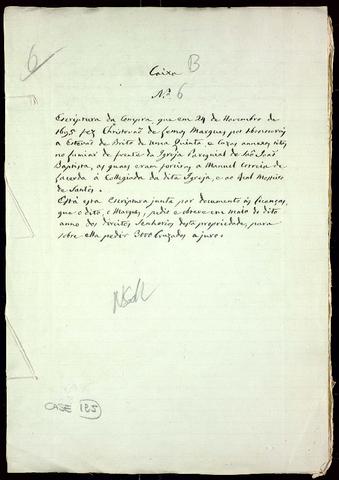 6
Caixa B
N.º 6
Escriptura da Compra que em 24 de Novembro de
1695 fez Christovaõ de Marques por
a Estevaõ de Brito de huma Quinta e Cazas annexas sitas
no Lumiar de fronte da Igreja Paroquial de Saõ Joaõ
Baptista, as quaes eraõ foreiras a Manuel Correia de
Lacerda á Collegiada da dita Igreja, e ao Real Mosteiro
de Santos.
Está esta Escriptura junta por documento ás licenças,
que o dito Marques, pedio e obteve em maio do dito
anno dos direitos Senhorios desta propriedade, para
sobre ella pedir 3000 Cruzados a juro.
CASE 185